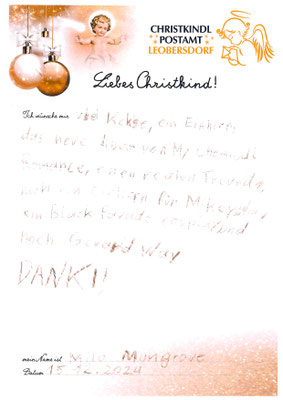 CHRISTKINDL
POSTAMT
LEOBERSDORF
Liebes Christkind!
Ich wünsche mir viel Kekse, ein Einhorn,
das neue Album von My Chemical
Romance, einen reichen Freund,
noch ein Einhorn für Mikey Way
ein Black Parade und
noch Gerard Way
DANKE!!
mein Name ist Milo Mungrove
Datum 15.12.2024